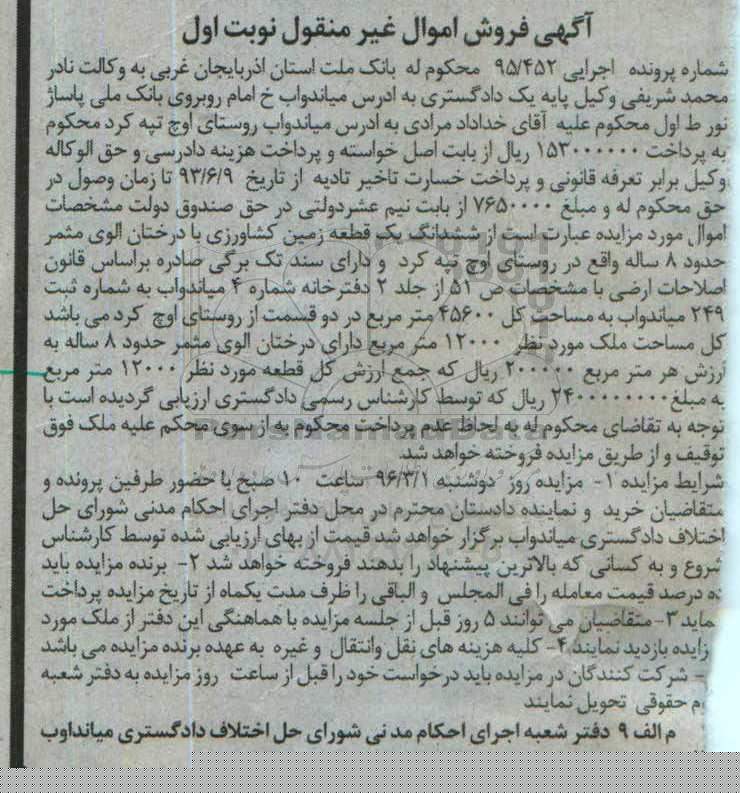 آگهی فروش اموال غیر منقول نوبت اول
شماره پرونده اجرایی ۹۵/۴۵۲ محکوم له بانک ملت استان اذربایجان غربی به وکالت نادر
محمد شریفی وکیل پایه یک دادگستری به ادرس میاندواب خ امام روبروی بانک ملی پاساژ
نور ط اول محکوم علیه آقای خداداد مرادی به ادرس میاندواب روستای اوچ تپه کرد محکوم
به پرداخت ۱۵۳۰۰۰۰۰۰ ریال از بابت اصل خواسته و پرداخت هزینه دادرسی و حق الوکاله
وکیل برابر تعرفه قانونی و پرداخت خسارت تاخیر تادیه از تاریخ ۹۳/۶/۹ تا زمان وصول در
حق محکوم له و مبلغ ۷۶۵۰۰۰۰ از بابت نیم عشردولتی در حق صندوق دولت مشخصات
اموال مورد مزایده عبارت است از ششدانگ یک قطعه زمین کشاورزی با درختان الوی مثمر
حدود ۸ ساله واقع در روستای اوچ تپه کرد و دارای سند تک برگی صادره براساس قانون
اصلاحات ارضی با مشخصات ص ۵۱ از جلد ۲ دفترخانه شماره ۴ میاندواب به شماره ثبت
۲۴۹ میاندواب به مساحت کل ۴۵۶۰۰ متر مربع در دو قسمت از روستای اوچ کرد می باشد
کل مساحت ملک مورد نظر ۱۲۰۰۰ متر مربع دارای درختان الوی مثمر حدود ۸ ساله به
ارزش هر متر مربع ۲۰۰۰۰۰ ریال که جمع ارزش کل قطعه مورد نظر ۱۲۰۰۰ متر مربع
به مبلغ ۲۴۰۰۰۰۰۰۰۰ ریال که توسط کارشناس رسمی دادگستری ارزیابی گردیده است با
توجه به تقاضای محکوم له به لحاظ عدم پرداخت محکوم به از سوی محکم علیه ملک فوق
توقیف و از طریق مزایده فروخته خواهد شد.
شرایط مزایده ۱- مزایده روز دوشنبه ۹۶/۳/۱ ساعت ۱۰ صبح با حضور طرفین پرونده و
متقاضیان خرید و نماینده دادستان محترم در محل دفتر اجرای احکام مدنی شورای حل
اختلاف دادگستری میاندواب برگزار خواهد شد قیمت از بهای ارزیابی شده توسط کارشناس
شروع و به کسانی که بالاترین پیشنهاد را بدهند فروخته خواهد شد ۲- برنده مزایده باید
ده درصد قیمت معامله را فی المجلس و الباقی را ظرف مدت یکماه از تاریخ مزایده پرداخت
نماید ۳- متقاضیان می توانند ۵ روز قبل از جلسه مزایده با هماهنگی این دفتر از ملک مورد
مزایده بازدید نمایند ۴- کلیه هزینه های نقل وانتقال و غیره به عهده برنده مزایده می باشد
- شرکت کنندگان در مزایده باید درخواست خود را قبل از ساعت روز مزایده به دفتر شعبه
حقوقی تحویل نمایند
م الف ۹ دفتر شعبه اجرای احکام مدنی شورای حل اختلاف دادگستری میانداوب
ParsNamadData